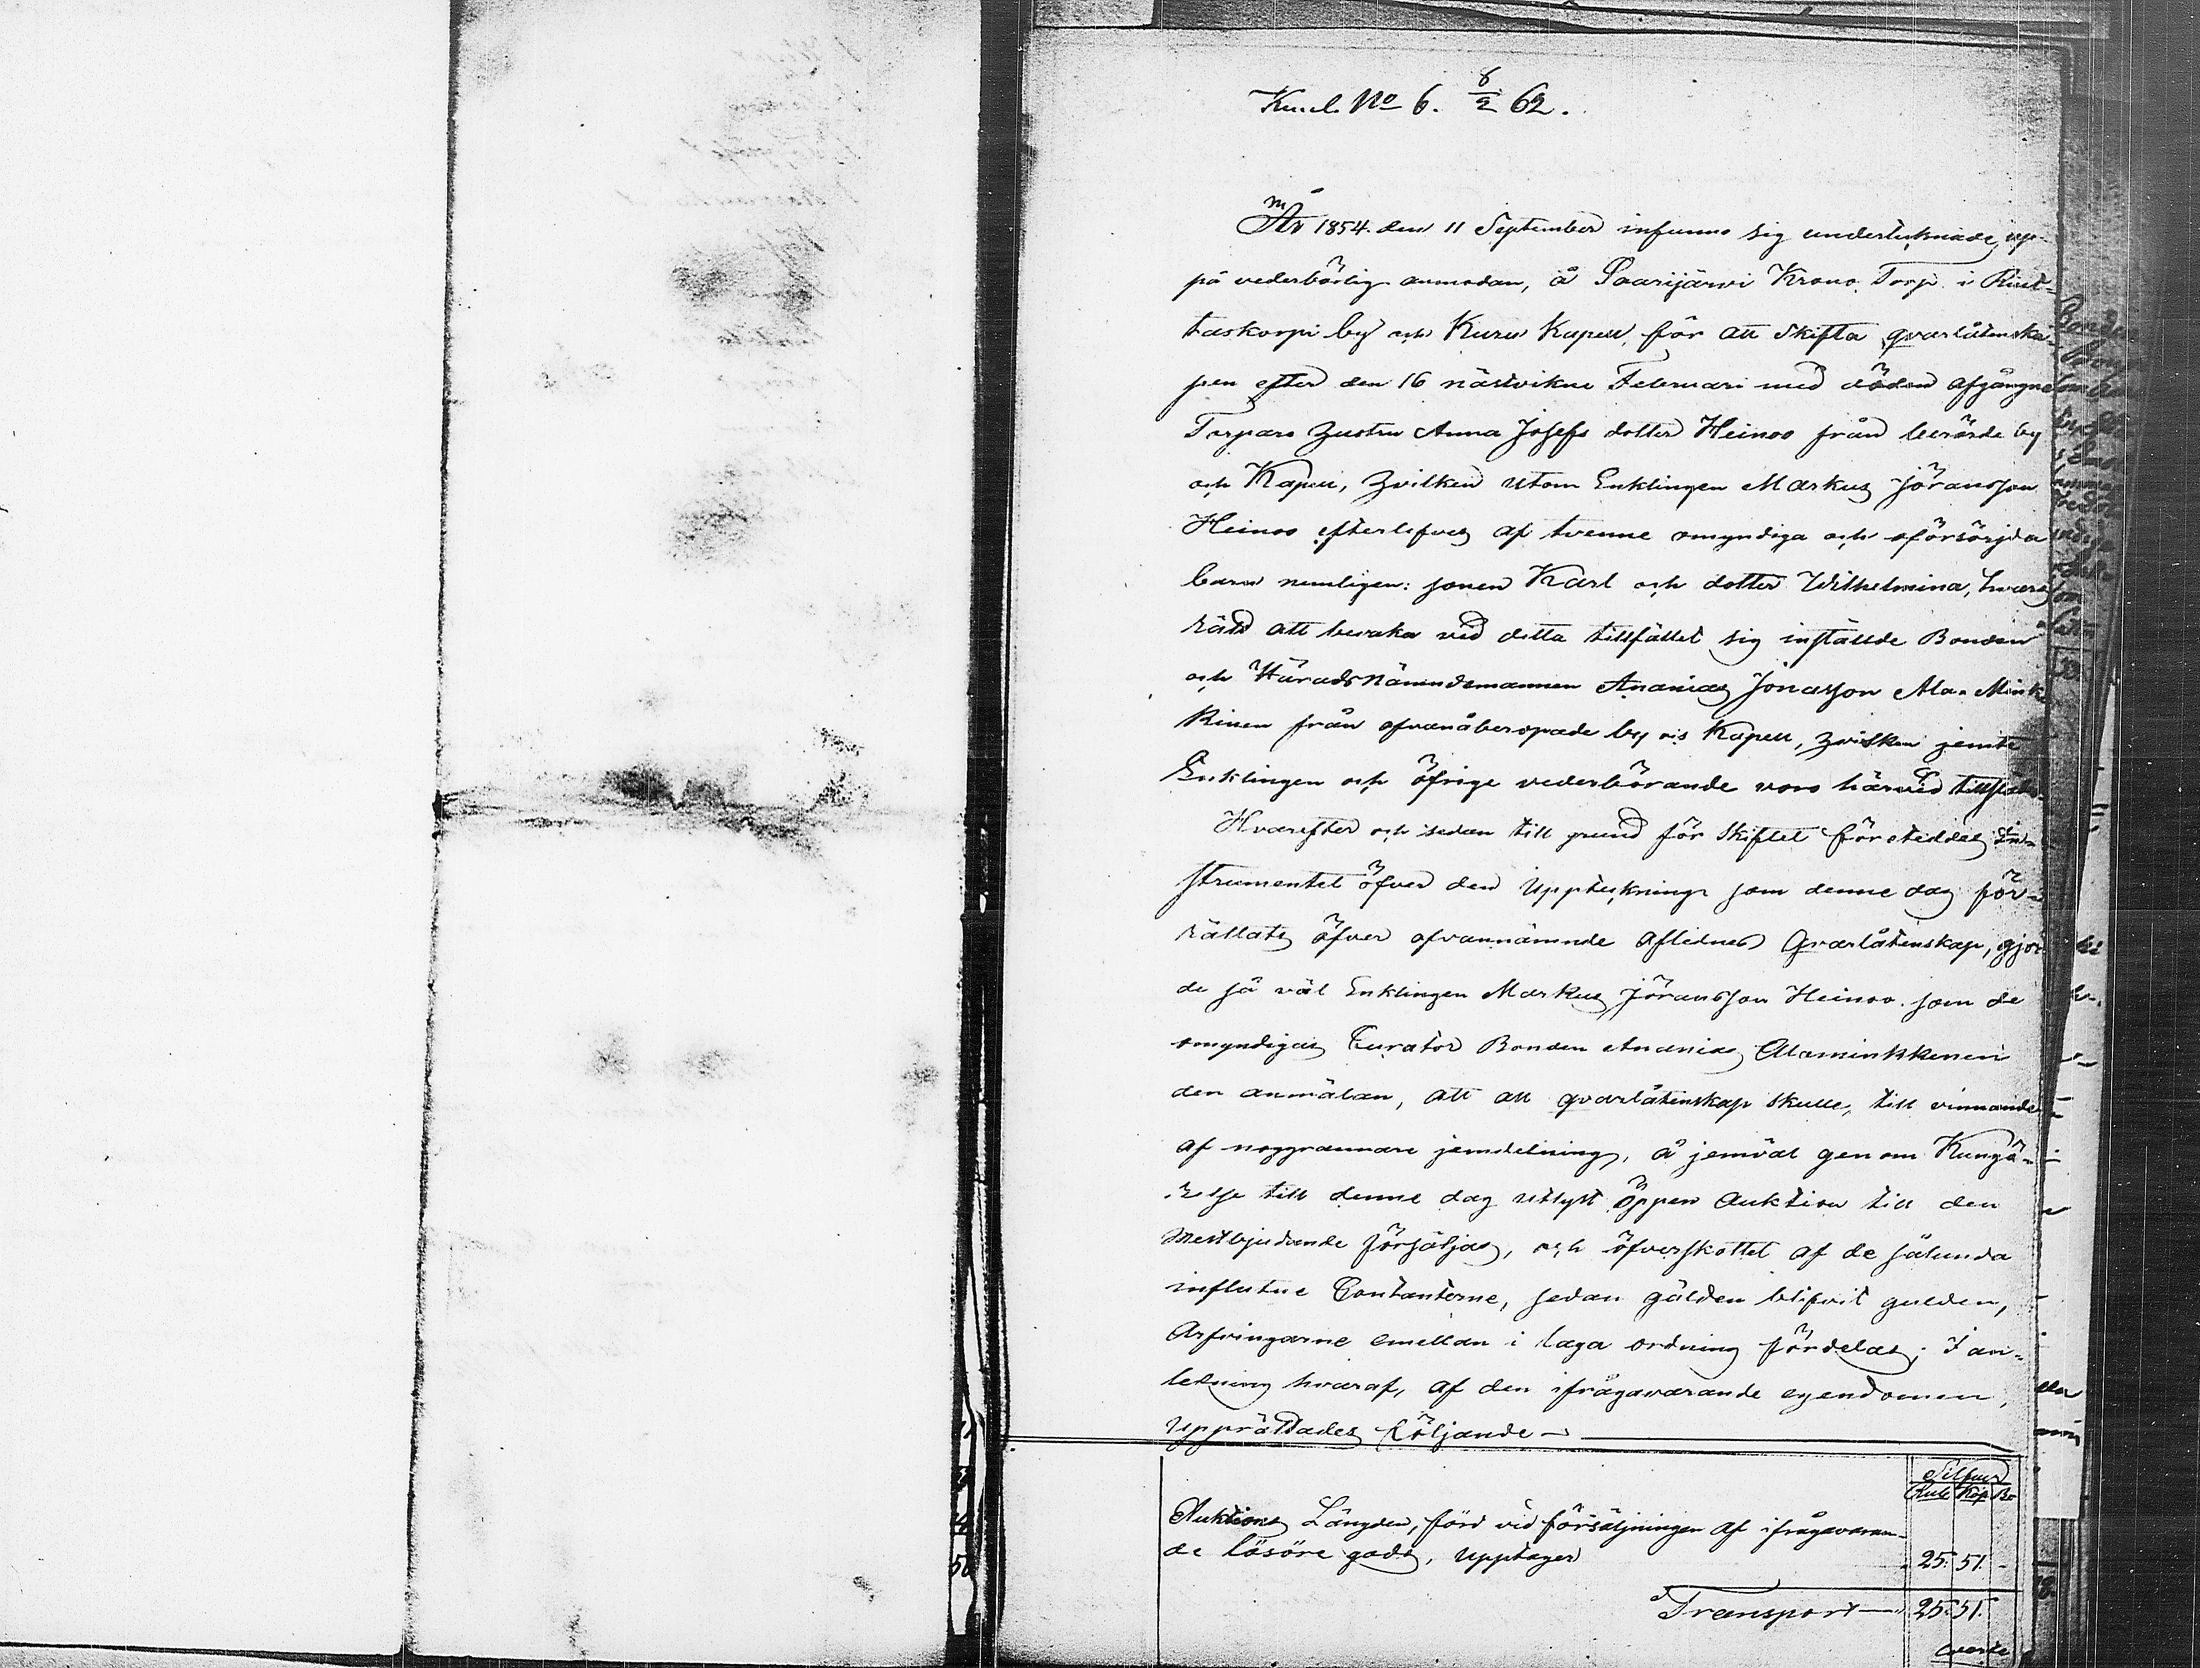 No 6. 6/2 62.
År 1854. den 11 September infunno sig undertecknade, up-
på vederbörlig anmodan, å Saarijärvi Krono Torp i Riit-
taskorpi by och Kuru Kapell, för att skifta qvarlåtenska-
pen efter den 16 nästvikne Februari med döden afgångne
Torpare Hustru Anna Josefs dotter Heinoo från berörde by
och Kapell, Hvilken utom Enklingen Markus Jöransson
Heinoo efterlefves af tvenne omyndiga och oförsörjda
barn nemligen: sonen Karl och dotter Wilhelmina, hvars
rätt att bevaka vid detta tillfället sig inställde Bonden
och Häradsnämndemannen Ananias Jonasson Ala-Mink-
kinen från ofvanåberopade by och Kapell, Hvilken jemte
Enklingen och öfrige vederbörande voro härvid tillstädes.
Hvarefter och sedan till grund för Skiftet företeddes In-
strumentet öfver den Uppteckning som denne dag för-
rättats öfver ofvannämnde aflednes Qvarlåtenskap, gjor-
de så väl Enklingen Markus Jöransson Heinoo som de
omyndigas Curator Bonden Ananias Alaminkkenen
den anmälan, att all qvarlåtenskap skulle, till vinnande
af noggrannare jemndelning, å jemväl genom Kungö-
relse till denne dag utlyst öppen Auktion till den
Mestbjudande försäljas, och öfverskottet af de sålunda
influtne Contanterne, sedan gälden blifvit gulden,
Arfvingarne emellan i laga ordning fördelas; I an-
ledning hvaraf, af den ifrågavarande egendomen,
Upprättades följande —
Silfver
Rub Kop
Auktions Längden, förd vid försäljningen af ifrågavaran-
de lösöre gods, Upptager 25. 51. -
Transport — 25. 51.